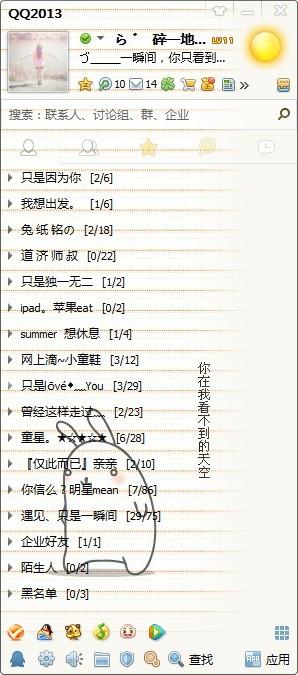 QQ2013
ら゛ 碎一地... LV11
づ____一瞬间，你只看到...
10 14
搜索：联系人、讨论组、群、企业
只是因为你 [2/6]
我想出发。 [1/6]
兔 纸 铭の [2/18]
道 济 师 叔 [0/22]
只是独一无二 [1/2]
ipad。苹果eat [0/2]
summer 想休息 [1/4]
网上滴~小童鞋 [3/12]
只是lōvé♦﹏You [3/29]
曾经这样走过灬 [2/23]
童星。★☆★☆★ [6/28]
『仅此而已』亲亲 [2/10]
你信么？明星mean [7/86]
遇见、只是一瞬间 [29/75]
企业好友 [1/1]
陌生人 [0/2]
黑名单 [0/3]
你在我看不到的天空
查找 APP 应用